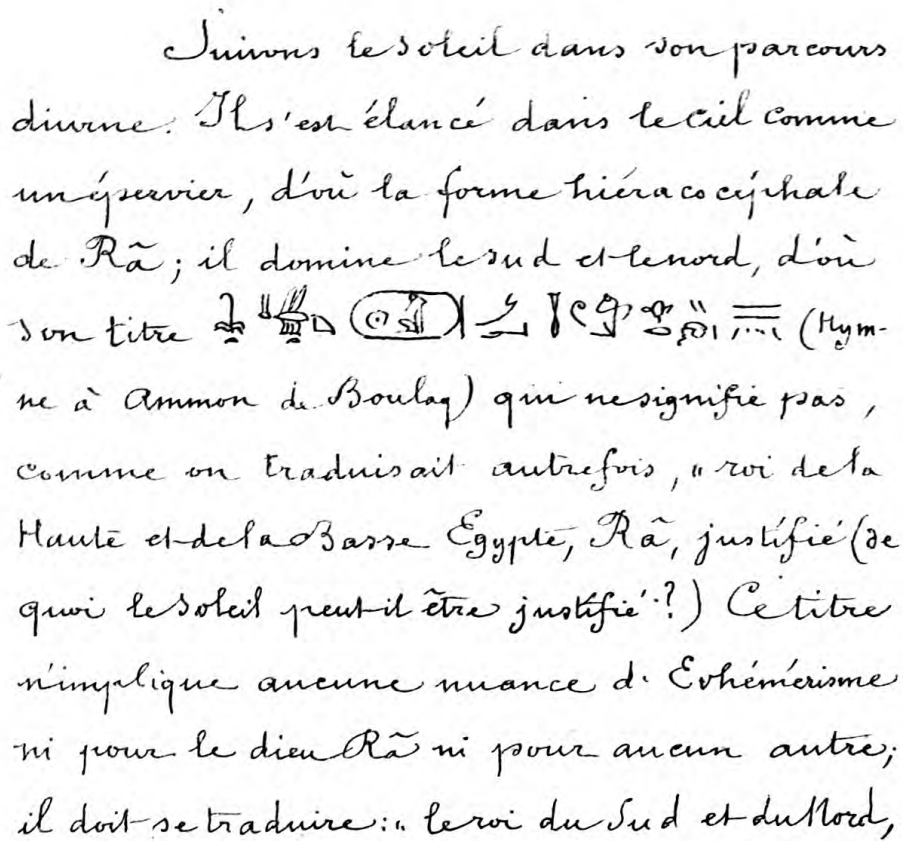 Suivons le soleil dans son parcours
diurne. Il s'est élancé dans le ciel comme
un épervier, d'où la forme hiéracocéphale
de Rã; il domine le sud et le nord, d'où
son titre (Hym-
ne à Ammon de Boulaq) qui ne signifie pas,
comme on traduisait autrefois, „ roi de la
Haute et de la Basse Egypte, Rã, justifié (de
quoi le soleil peut-il être justifié?) Ce titre
n'implique aucune nuance d'Evhémérisme
ni pour le dieu Rã ni pour aucun autre;
il doit se traduire: „ le roi du Sud et du Nord,